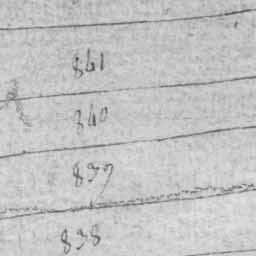 841
840
839
838